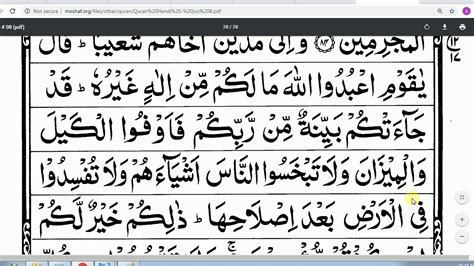 moshaf.org/files/other/quran/Quran%20Hendi%20-%20joz%208.pdf
# 08 (pdf)
28 / 28
الْمُجْرِمِيْنَ ۝۸۴ وَاِلٰى مَدْيَنَ اَخَاهُمْ شُعَيْبًا ؕ قَالَ
۱۲
۱۷
يٰقَوْمِ اعْبُدُوا اللّٰهَ مَا لَكُمْ مِّنْ اِلٰهٍ غَيْرُهٗ ؕ قَدْ
جَآءَتْكُمْ بَيِّنَةٌ مِّنْ رَّبِّكُمْ فَاَوْفُوا الْكَيْلَ
وَالْمِيْزَانَ وَلَا تَبْخَسُوا النَّاسَ اَشْيَآءَهُمْ وَلَا تُفْسِدُوْا
فِى الْاَرْضِ بَعْدَ اِصْلَاحِهَا ؕ ذٰلِكُمْ خَيْرٌ لَّكُمْ